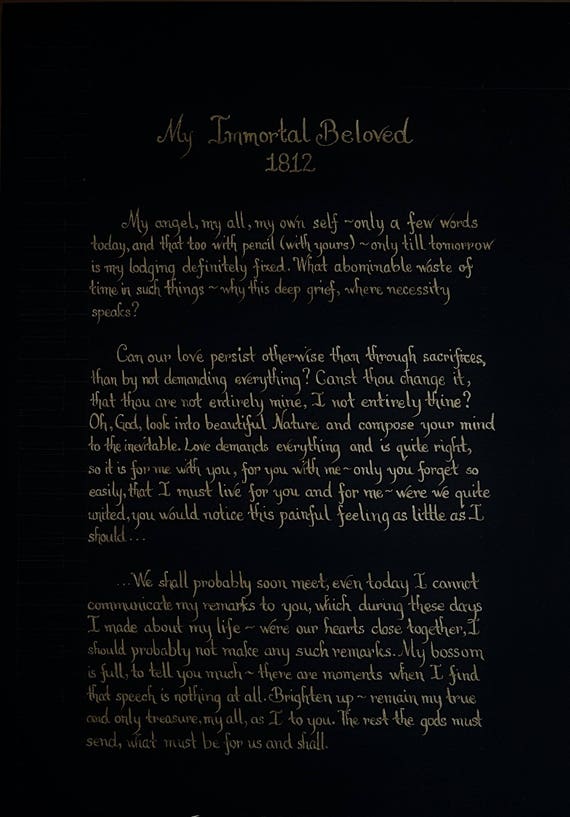 My Immortal Beloved
1812
My angel, my all, my own self ~ only a few words
today, and that too with pencil (with yours) ~ only till tomorrow
is my lodging definitely fixed. What abominable waste of
time in such things ~ why this deep grief, where necessity
speaks?
Can our love persist otherwise than through sacrifices,
than by not demanding everything? Canst thou change it,
that thou are not entirely mine, I not entirely thine?
Oh, God, look into beautiful Nature and compose your mind
to the inevitable. Love demands everything and is quite right,
so it is for me with you, for you with me ~ only you forget so
easily, that I must live for you and for me ~ were we quite
united, you would notice this painful feeling as little as I
should...
...We shall probably soon meet, even today I cannot
communicate my remarks to you, which during these days
I made about my life ~ were our hearts close together, I
should probably not make any such remarks. My bossom
is full, to tell you much ~ there are moments when I find
that speech is nothing at all. Brighten up ~ remain my true
and only treasure, my all, as I to you. The rest the gods must
send, what must be for us and shall.